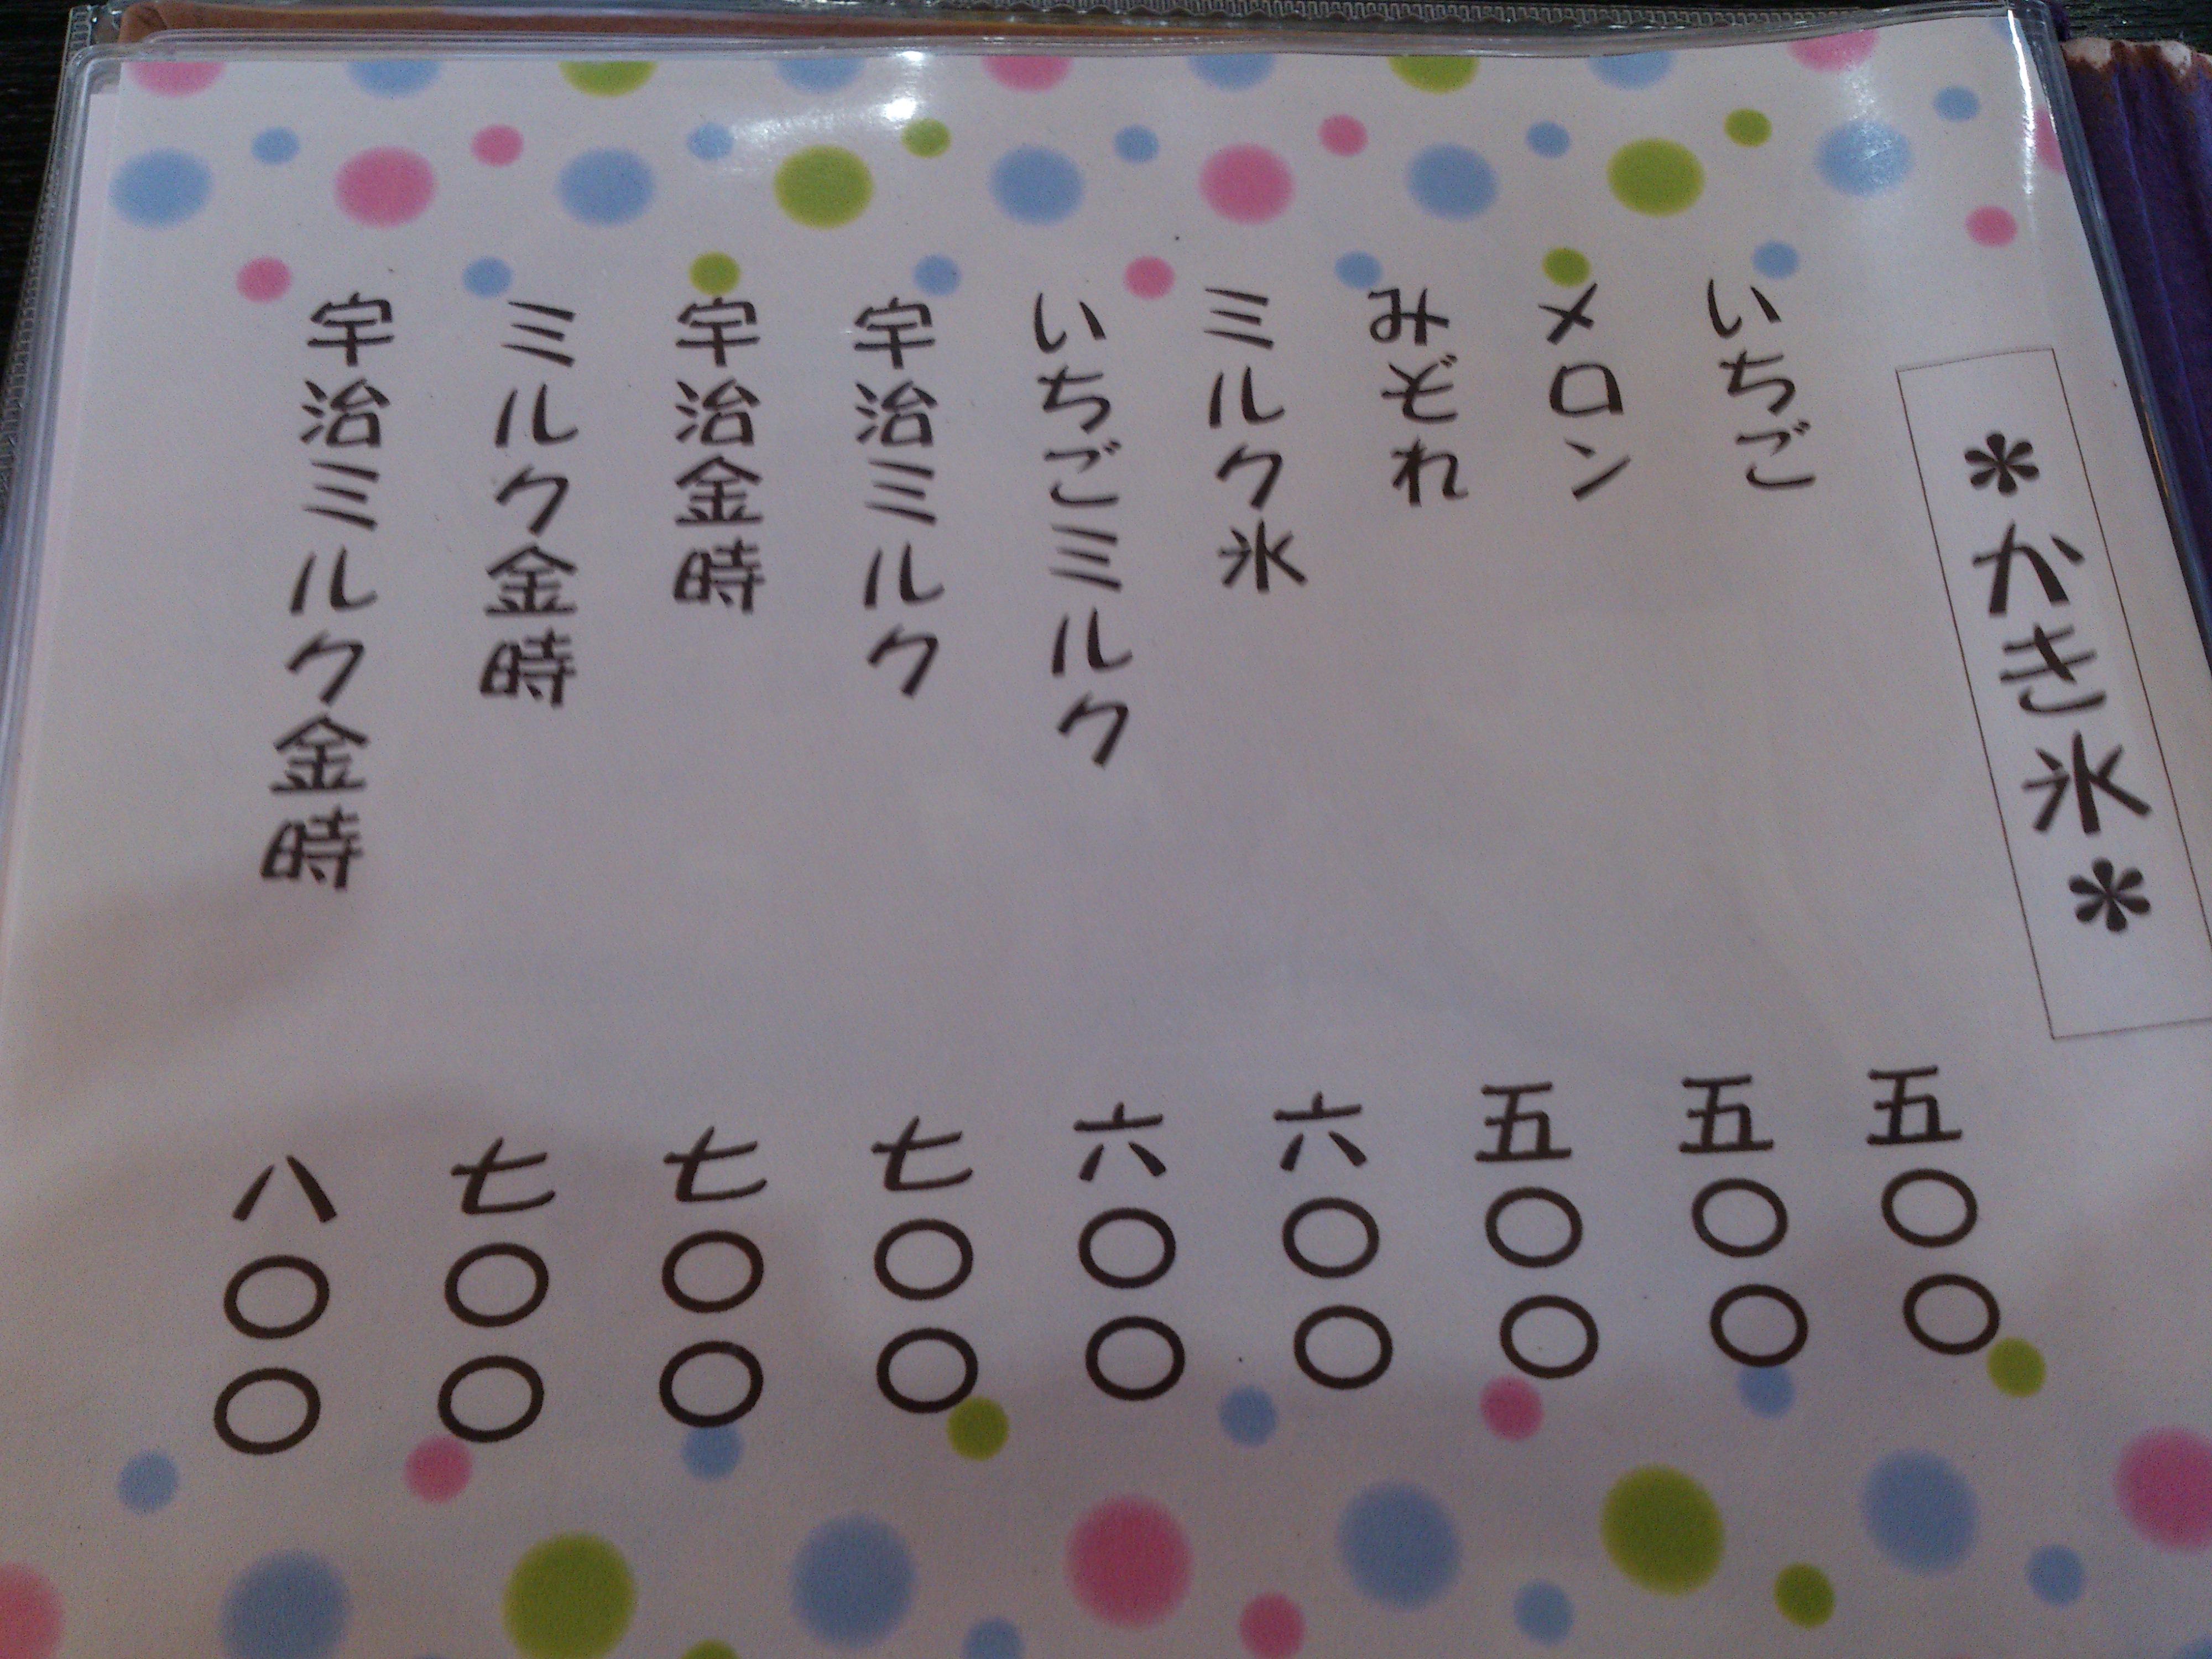 ＊かき氷＊
いちご 五〇〇
メロン 五〇〇
みぞれ 五〇〇
ミルク氷 六〇〇
いちごミルク 六〇〇
宇治ミルク 七〇〇
宇治金時 七〇〇
ミルク金時 七〇〇
宇治ミルク金時 八〇〇